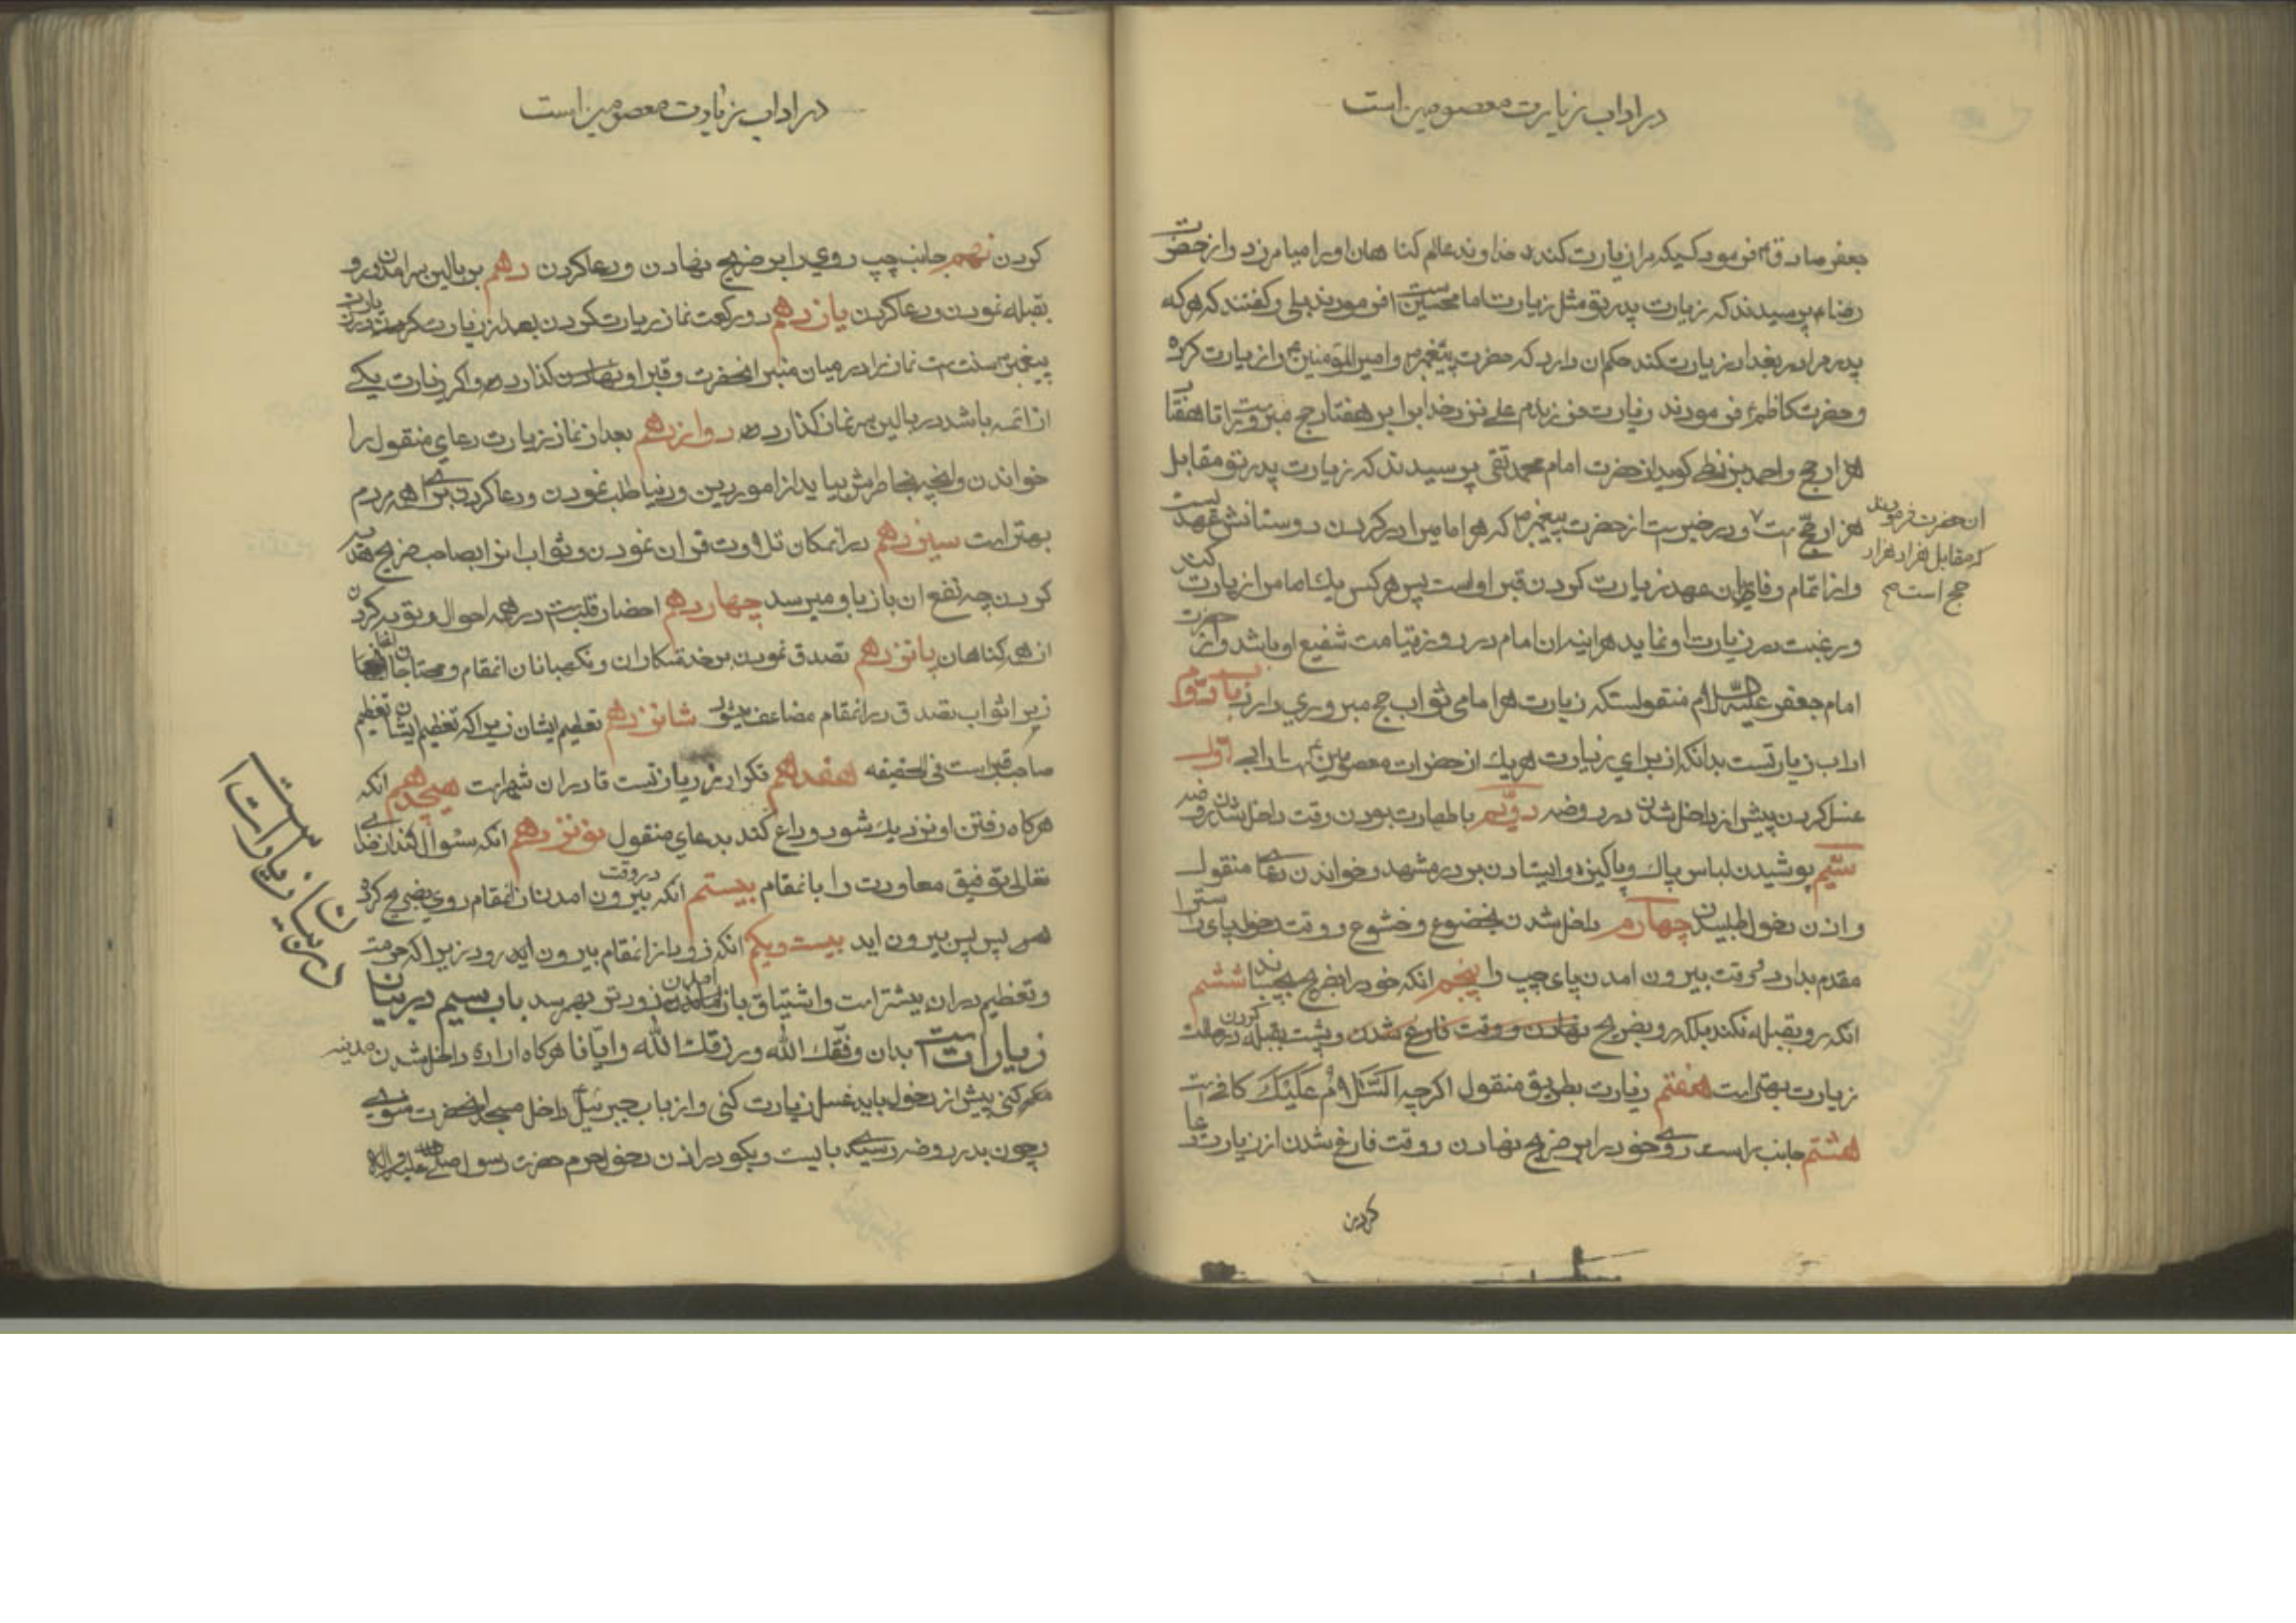 در اداب زیارت معصومین است
جعفر صادق ع فرمود کسیکه مرا زیارت کند خداوند عالم کناهان او را میامرزد و از حضرت
رضا ع پرسیدند که زیارت پدر تو مثل زیارت امام حسین است فرمودند بلی و کفتند که هر که
پدر مرا در بغداد زیارت کند حکم ان دارد که حضرت پیغمبر ص و امیر المؤمنین ع را زیارت کرده
و حضرت کاظم ع فرمودند زیارت فرزندم علی نزد خدا برابر هفتاد حج مبرور است تا هفتاد
هزار حج و احمد بزنطی کوید از حضرت امام محمد تقی پرسیدند که زیارت پدر تو مقابل
هزار حج است و در خبر است از حضرت پیغمبر ص که هر امامیرا در کردن دوستانش عهدیست
ان حضرت فرمودند
که مقابل هزار هزار
حج است صح
و از اتمام وفای بان عهد زیارت کردن قبر اوست پس هر کس یک امام را زیارت کند
و رغبت در زیارت او نماید هراینه ان امام در روز قیامت شفیع او باشد و از حضرت
امام جعفر علیه السلام منقولست که زیارت هر امامی ثواب حج مبروری دارد
اداب زیارتست بدانکه از برای زیارت هر یک از حضرات معصومین ع اول
غسل کردن پیش از داخل شدن در روضه دویم با طهارت بودن وقت داخل شدن روضه
سیم پوشیدن لباس پاک و پاکیزه و ایستادن بر در مشهد و خواندن دعای منقول
و اذن دخول طلبیدن چهارم داخل شدن بخضوع و خشوع و وقت دخول پای راستی را
مقدم بدارد و وقت بیرون امدن پای چپ را پنجم انکه خود را بضریح بچسباند ششم
انکه رو بقبله نکند بلکه رو بضریح نهادن و وقت فارغ شدن و پشت بقبله کردن در حالت
زیارت بهتر است هفتم زیارت بطریق منقول اکرچه السَّلامُ عَلَیْکَ کافی است
هشتم جانب راست روی خود را بر ضریح نهادن و وقت فارغ شدن از زیارت دعا
کردن
در اداب زیارت معصومین است
کردن نهم جانب چپ روی را بر ضریح نهادن و دعا کردن دهم بر بالین سر امدن و رو
بقبله نمودن و دعا کردن یازدهم دو رکعت نماز زیارت کردن بعد از زیارت کردن و در زیارت
پیغمبر ص سنت است نماز را در میان منبر انحضرت و قبر او کذارد و اکر زیارت یکی
از ائمه باشد در بالین سر نماز کذارد دوازدهم بعد از نماز زیارت دعای منقول را
خواندن و انچه بخاطرش بیاید از امور دین و دنیا طلب نمودن و دعا کردن برای همه مردم
بهتر است سیزدهم در انمکان تلاوت قران نمودن و ثواب انرا بصاحب ضریح هدیه
کردن چه نفع ان باز باو میرسد چهاردهم احضار قلبست در همه احوال و توبه کردن
از همه کناهان پانزدهم تصدق نمودن بر خدمتکاران و نکهبانان انمقام و محتاجان انجا
زیرا ثواب تصدق در انمقام مضاعف میشود شانزدهم تعظیم ایشان زیرا که تعظیم ایشان تعظیم
صاحب قبر است فی الحقیقه هفدهم تکرار زیارتست تا در ان شهر است هیجدهم انکه
هرکاه رفتن او نزدیک شود وداع کند بدعای منقول نوزدهم انکه سئوال کند از خدای
تعالی توفیق معاودت را بانمقام بیستم انکه در وقت بیرون امدن از انمقام روی بضریح کرده
پس پس بیرون اید بیست و یکم انکه زود از انمقام بیرون اید رود زیرا که حرمت
و تعظیم در ان بیشتر است و اشتیاق باز امدن زودتر بهم رسد باب سیم در بیان
زیارات است بدان وفّقک الله و رزقک الله و ایّانا هرکاه اراده داخل شدن مدینه
مکرم کنی پیش از دخول باید غسل زیارت کنی و از باب جبرئیل داخل مسجد انحضرت شوی
و چون بدر روضه رسی بایست و بکو در اذن دخول حرم حضرت رسول صلی الله علیه و اله
در بیان زیارات است